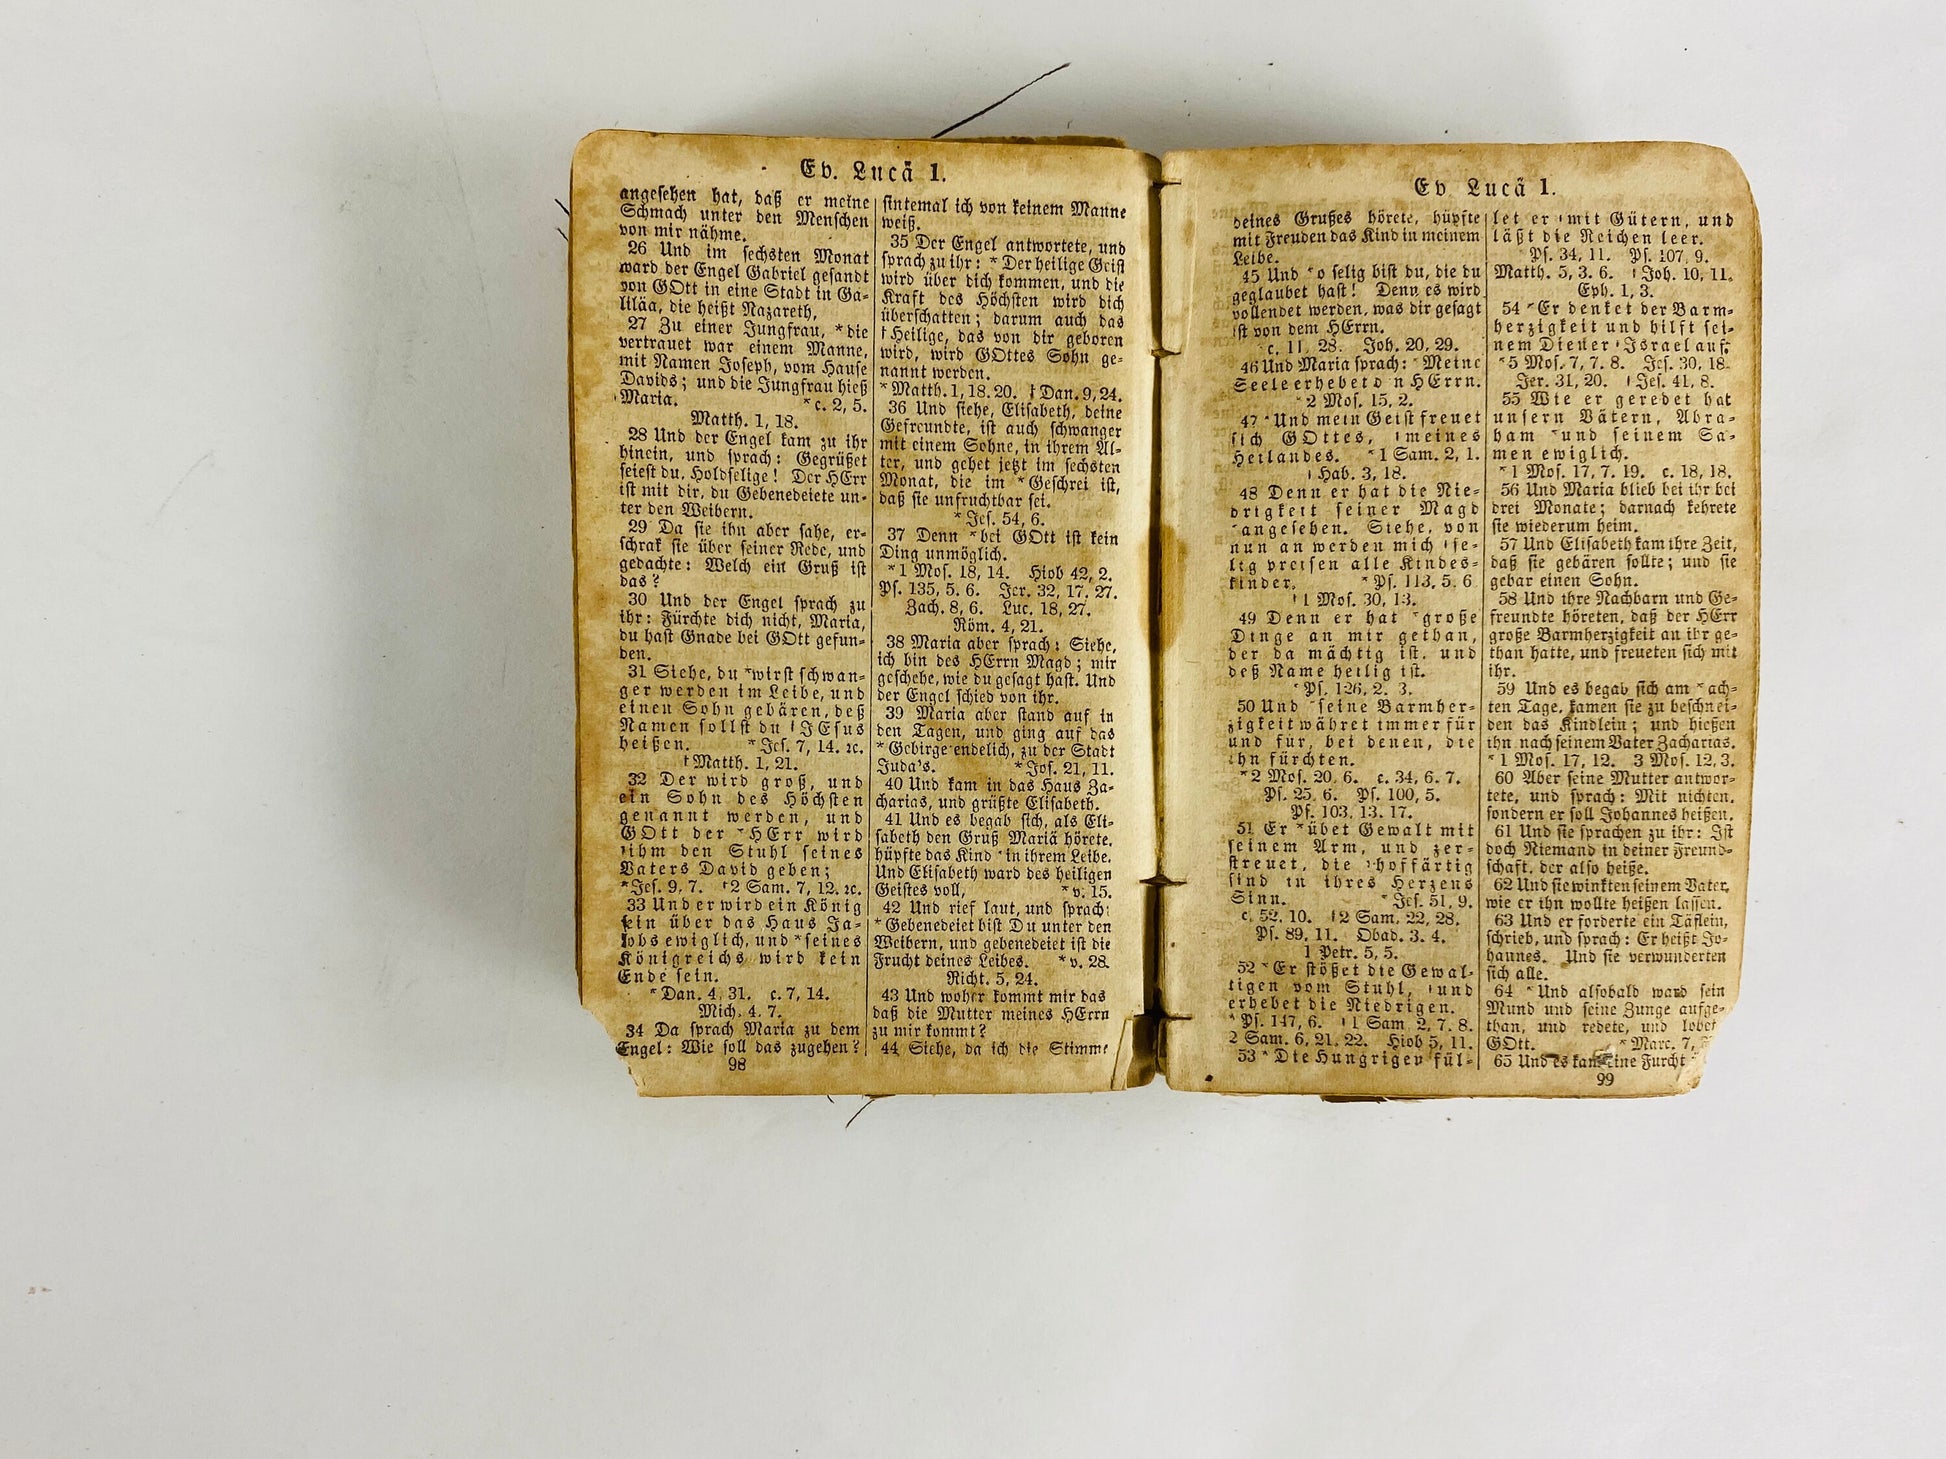 Ev. Lucä 1.
angesehen hat, daß er meine
Schmach unter den Menschen
von mir nähme.
26 Und im sechsten Monat
ward der Engel Gabriel gesandt
von GOtt in eine Stadt in Ga-
liläa, die heißt Nazareth,
27 Zu einer Jungfrau, *die
vertrauet war einem Manne,
mit Namen Joseph, vom Hause
Davids; und die Jungfrau hieß
Maria. *c. 2, 5.
Matth. 1, 18.
28 Und der Engel kam zu ihr
hinein, und sprach: Gegrüßet
seiest du, Holdselige! Der HErr
ist mit dir, du Gebenedeiete un-
ter den Weibern.
29 Da sie ihn aber sahe, er-
schrak sie über seiner Rede, und
gedachte: Welch ein Gruß ist
das?
30 Und der Engel sprach zu
ihr: Fürchte dich nicht, Maria,
du hast Gnade bei GOtt gefun-
den.
31 Siehe, du *wirst schwan-
ger werden im Leibe, und
einen Sohn gebären, deß
Namen sollst du †JEsus
heißen. *Jes. 7, 14. ꝛc.
†Matth. 1, 21.
32 Der wird groß, und
ein Sohn des Höchsten
genannt werden, und
GOtt der *HErr wird
†ihm den Stuhl seines
Vaters David geben;
*Jes. 9, 7. †2 Sam. 7, 12. ꝛc.
33 Und er wird ein König
sein über das Haus Ja-
kobs ewiglich, und *seines
Königreichs wird kein
Ende sein.
*Dan. 4, 31. c. 7, 14.
Mich. 4, 7.
34 Da sprach Maria zu dem
Engel: Wie soll das zugehen?
98
sintemal ich von keinem Manne
weiß.
35 Der Engel antwortete, und
sprach zu ihr: *Der heilige Geist
wird über dich kommen, und die
Kraft des Höchsten wird dich
überschatten; darum auch das
†Heilige, das von dir geboren
wird, wird GOttes Sohn ge-
nannt werden.
*Matth. 1, 18. 20. †Dan. 9, 24.
36 Und siehe, Elisabeth, deine
Gefreundte, ist auch schwanger
mit einem Sohne, in ihrem Al-
ter, und gehet jetzt im sechsten
Monat, die im *Geschrei ist,
daß sie unfruchtbar sei.
*Jes. 54, 6.
37 Denn *bei GOtt ist kein
Ding unmöglich.
*1 Mos. 18, 14. Hiob 42, 2.
Ps. 135, 5. 6. Jer. 32, 17. 27.
Zach. 8, 6. Luc. 18, 27.
Röm. 4, 21.
38 Maria aber sprach: Siehe,
ich bin des HErrn Magd; mir
geschehe, wie du gesagt hast. Und
der Engel schied von ihr.
39 Maria aber stand auf in
den Tagen, und ging auf das
*Gebirge endelich, zu der Stadt
Juda's. *Jos. 21, 11.
40 Und kam in das Haus Za-
charias, und grüßte Elisabeth.
41 Und es begab sich, als Eli-
sabeth den Gruß Mariä hörete,
hüpfte das Kind *in ihrem Leibe.
Und Elisabeth ward des heiligen
Geistes voll, *v. 15.
42 Und rief laut, und sprach:
*Gebenedeiet bist Du unter den
Weibern, und gebenedeiet ist die
Frucht deines Leibes. *v. 28.
Richt. 5, 24.
43 Und woher kommt mir das
daß die Mutter meines HErrn
zu mir kommt?
44 Siehe, da ich die Stimme
Ev. Lucä 1.
deines Grußes hörete, hüpfte
mit Freuden das Kind in meinem
Leibe.
45 Und *o selig bist du, die du
geglaubet hast! Denn es wird
vollendet werden, was dir gesagt
ist von dem HErrn.
c. 11, 28. Joh. 20, 29.
46 Und Maria sprach: *Meine
Seele erhebet den HErrn.
*2 Mos. 15, 2.
47 *Und mein Geist freuet
sich GOttes, †meines
Heilandes. *1 Sam. 2, 1.
†Hab. 3, 18.
48 Denn er hat die Nie-
drigkeit seiner Magd
*angesehen. Siehe, von
nun an werden mich †se-
lig preisen alle Kindes-
kinder, *Ps. 113, 5. 6
†1 Mos. 30, 13.
49 Denn er hat *große
Dinge an mir gethan,
der da mächtig ist, und
deß Name heilig ist.
*Ps. 126, 2. 3.
50 Und *seine Barmher-
zigkeit währet immer für
und für, bei denen, die
ihn fürchten.
*2 Mos. 20, 6. c. 34, 6. 7.
Ps. 25, 6. Ps. 100, 5.
Ps. 103, 13. 17.
51 Er *übet Gewalt mit
seinem Arm, und zer-
streuet, die †hoffärtig
sind in ihres Herzens
Sinn. *Jes. 51, 9.
c. 52, 10. †2 Sam. 22, 28.
Ps. 89, 11. Obad. 3. 4.
1 Petr. 5, 5.
52 *Er stößet die Gewal-
tigen vom Stuhl, †und
erhebet die Niedrigen.
*Ps. 147, 6. †1 Sam. 2, 7. 8.
2 Sam. 6, 21. 22. Hiob 5, 11.
53 *Die Hungrigen fül-
let er †mit Gütern, und
läßt die Reichen leer.
*Ps. 34, 11. Ps. 107, 9.
Matth. 5, 3. 6. †Joh. 10, 11.
Eph. 1, 3.
54 *Er denket der Barm-
herzigkeit und hilft sei-
nem Diener †Israel auf:
*5 Mos. 7, 7. 8. Jes. 30, 18.
Jer. 31, 20. †Jes. 41, 8.
55 Wie er geredet hat
unsern Vätern, Abra-
ham *und seinem Sa-
men ewiglich.
*1 Mos. 17, 7. 19. c. 18, 18.
56 Und Maria blieb bei ihr bei
drei Monate; darnach kehrete
sie wiederum heim.
57 Und Elisabeth kam ihre Zeit,
daß sie gebären sollte; und sie
gebar einen Sohn.
58 Und ihre Nachbarn und Ge-
freundte höreten, daß der HErr
große Barmherzigkeit an ihr ge-
than hatte, und freueten sich mit
ihr.
59 Und es begab sich am *ach-
ten Tage, kamen sie zu beschnei-
den das Kindlein; und hießen
ihn nach seinem Vater Zacharias.
*1 Mos. 17, 12. 3 Mos. 12, 3.
60 Aber seine Mutter antwor-
tete, und sprach: Mit nichten,
sondern er soll Johannes heißen.
61 Und sie sprachen zu ihr: Ist
doch Niemand in deiner Freund-
schaft, der also heiße.
62 Und sie winkten seinem Vater,
wie er ihn wollte heißen lassen.
63 Und er forderte ein Täflein,
schrieb, und sprach: Er heißt Jo-
hannes. Und sie verwunderten
sich alle.
64 *Und alsobald ward sein
Mund und seine Zunge aufge-
than, und redete, und lobet
GOtt. *Marc. 7,
65 Und es kam eine Furcht
99